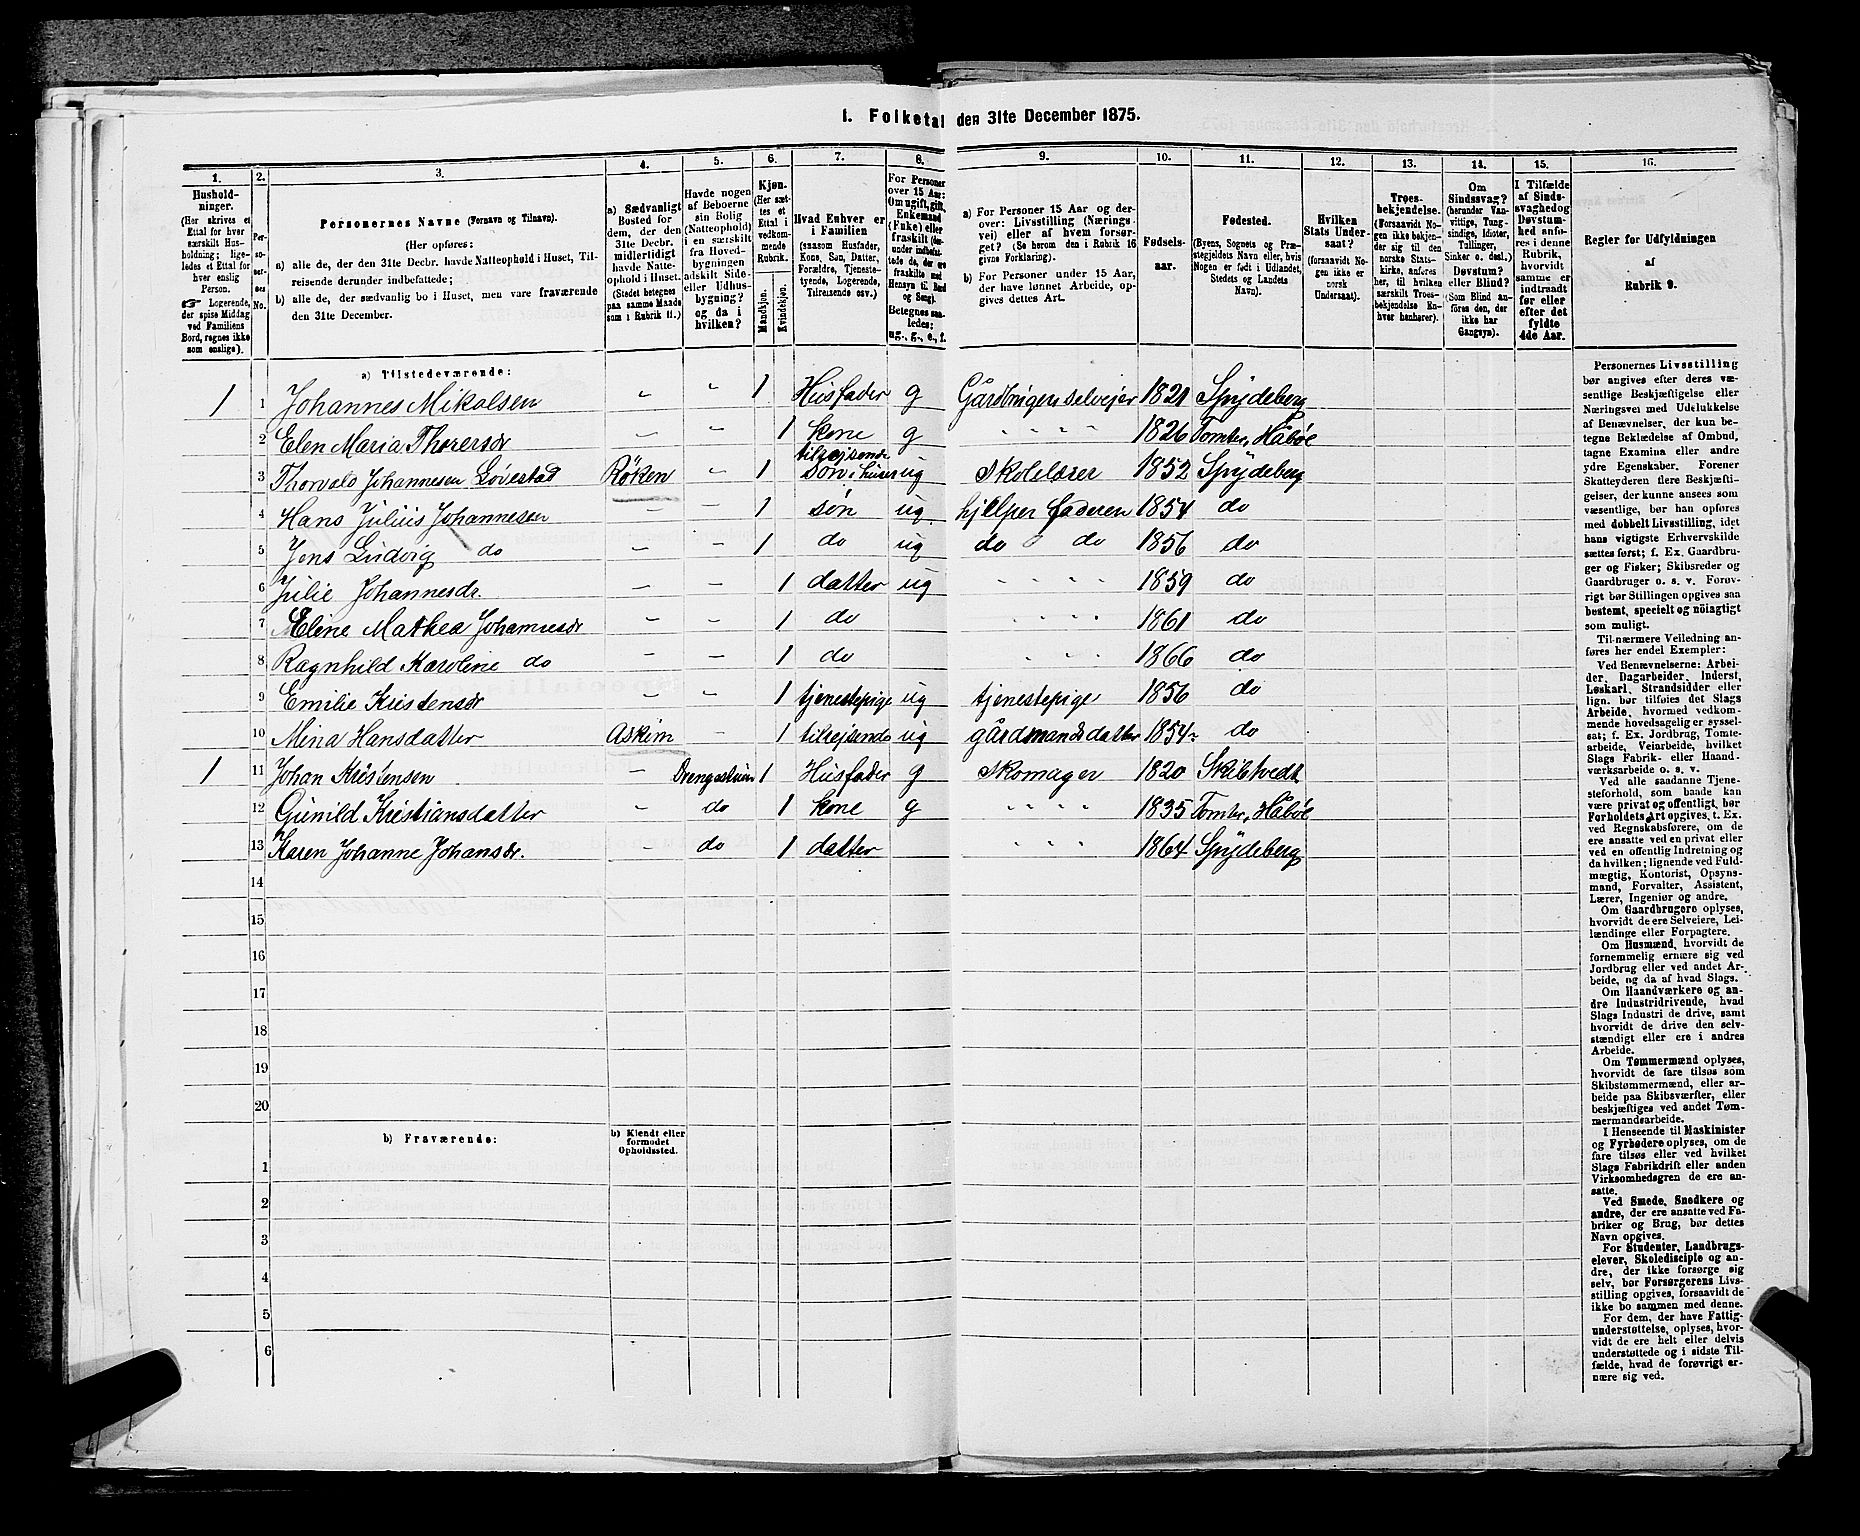 1. Folketal den 31te December 1875.
1. 2. 3. 4. 5. 6. 7. 8. 9. 10. 11. 12. 13. 14. 15. 16.
Hushold-
ninger.
(Her skrives et
Ettal for hver
særskilt Hus-
holdning; lige-
ledes et Ettal for
hver enslig
Person.
☞ Logerende,
der spise Middag
ved Familiens
Bord, regnes ikke
som enslige).
Per-
so-
ner-
nes
No.
Personernes Navne (Fornavn og Tilnavn).
(Her opføres:
a) alle de, der den 31te Decbr. havde Natteophold i Huset, Til-
reisende derunder indbefattede;
b) alle de, der sædvanlig bo i Huset, men vare fraværende
den 31te December.
a) Sædvanligt
Bosted for
dem, der den
31te Decbr.
midlertidigt
havde Natte-
ophold i Huset.
(Stedet betegnes
paa samme Maade
som i Rubrik 11.)
Havde nogen
af Beboerne
sin Bolig
(Natteophold)
i en særskilt
fra Hoved-
bygningen
adskilt Side-
eller Udhus-
bygning?
og da i
hvilken?
Kjøn.
(Her sæt-
tes et
Ettal i
vedkom-
mende
Rubrik.
Mandkjøn.
Kvindekjøn.
Hvad Enhver er
i Familien
(saasom Husfader,
Kone, Søn, Datter,
Forældre, Tjeneste-
tyende, Logerende,
Tilreisende osv.)
For Personer
over 15 Aar:
Om ugift, gift,
Enkemand
(Enke) eller
fraskilt (der-
under indbefat-
tede de, der ere
fraskilte med
Hensyn til Bord
og Seng).
Betegnes saa-
ledes:
ug., g., e., f.
a) For Personer 15 Aar og der-
over: Livsstilling (Nærings-
vei) eller af hvem forsør-
get? (Se herom den i Rubrik 16
givne Forklaring).
b) For Personer under 15 Aar,
der have lønnet Arbeide, op-
gives dettes Art.
Fødsels-
aar.
Fødested.
(Byens, Sognets og Præ-
stegjeldets Navn eller, hvis
Nogen er født i Udlandet,
Stedets og Landets
Navn).
Hvilken
Stats Under-
saat?
(forsaavidt No-
gen ikke er
norsk
Undersaat).
Troes-
bekjendelse.
(Forsaavidt No-
gen ikke bekjen-
der sig til den
norske Stats-
kirke, anføres
her, til hvilken
særskilt Troes-
bekjendelse En-
hver henhører).
Om
Sindssvag?
(herunder Van-
vittige, Tung-
sindige, Idioter,
Tullinger,
Sinker o. desl.)
Døvstum?
eller Blind?
(Som Blind an-
føres den, der
ikke har
Gangsyn).
I Tilfælde
af Sinds-
svaghed og
Døvstum-
hed anfø-
res i denne
Rubrik,
hvorvidt
samme er
indtraadt
før eller
efter det
fyldte
4de Aar.
Regler for Udfyldningen
af
Rubrik 9.
a) Tilstedeværende:
1 1 Johannes Mikalsen " " 1 Husfader g Gårdbruger selvejer 1821 Spydeberg
2 Elen Maria Thorersdr " " 1 kone g " " " " 1826 Tomter, Håbøl
3 Thorvald Johannesen Løvestad Röken " 1 tilrejsende søn i huset ug Skolelærer 1852 Spydeberg
4 Hans Julius Johannesen – – 1 søn ug. hjelper faderen 1854 do
5 Jens Ludvig do – – 1 do ug do do 1856 do
6 Julie Johannesdr. – – 1 datter ug " " " " 1859 do
7 Eline Mathea Johannesdr – – 1 do " " " " 1861 do
8 Ragnhild Karoline do – – 1 do " " " 1866 do
9 Emilie Kristensdr – – 1 tjenestepige ug tjenestepige 1856 do
10 Mina Hansdatter Askim – 1 tilrejsende ug gårdmandsdatter 1854 do
1 11 Johan Kristensen – Drengestuen 1 Husfader g Skomager 1820 Skibtvedt
12 Gunild Kristiansdatter – do 1 kone g " " " " 1835 Tomter, Håbøl
13 Karen Johanne Johansdr. – do 1 datter " " " 1864 Spydeberg
14
15
16
17
18
19
20
b) Fraværende:
b) Kjendt eller
formodet
Opholdssted.
1
2
3
4
5
6
Personernes Livsstilling
bør angives efter deres væ-
sentlige Beskjæftigelse eller
Næringsvei med Udelukkelse
af Benævnelser, der kun be-
tegne Beklædelse af Ombud,
tagne Examina eller andre
ydre Egenskaber. Forener
Skatteyderen flere Beskjæfti-
gelser, der kunne ansees som
væsentlige, bør han opføres
med dobbelt Livsstilling, idet
hans vigtigste Erhvervskilde
sættes først; f. Ex. Gaardbru-
ger og Fisker; Skibsreder og
Gaardbruger o. s. v. Forøv-
rigt bør Stillingen opgives saa
bestemt, specielt og nøiagtigt
som muligt.
Til nærmere Veiledning an-
føres her endel Exempler:
Ved Benævnelserne: Arbei-
der, Dagarbeider, Inderst,
Løskarl, Strandsidder eller
lign. bør tilføies det Slags
Arbeide, hvormed vedkom-
mende hovedsagelig er syssel-
sat; f. Ex. Jordbrug, Tomte-
arbeide, Veiarbeide, hvilket
Slags Fabrik- eller Haand-
værksarbeide o. s. v.
Ved alle saadanne Tjene-
steforhold, som baade kan
være privat og offentligt, bør
Forholdets Art opgives, t. Ex.
ved Regnskabsførere, om de
ere ansatte ved en privat eller
ved en offentlig Indretning og
da hvilken; lignende ved Fuld-
mægtig, Kontorist, Opsyns-
mand, Forvalter, Assistent,
Lærer, Ingeniør og andre.
Om Gaardbrugere oplyses,
hvorvidt de ere Selveiere, Lei-
lændinge eller Forpagtere.
Om Husmænd, hvorvidt de
fornemmelig ernære sig ved
Jordbrug eller ved andet Ar-
beide, og da af hvad Slags.
Om Haandværkere og an-
dre Industridrivende, hvad
Slags Industri de drive, samt
hvorvidt de drive den selv-
stændigt eller ere i andres
Arbeide.
Om Tømmermænd oplyses,
hvorvidt de fare tilsøs som
Skibstømmermænd, eller ar-
beide paa Skibsværfter, eller
beskjæftiges ved andet Tøm-
mermandsarbeide.
I Henseende til Maskinister
og Fyrbødere oplyses, om de
fare tilsøs eller ved hvilket
Slags Fabrikdrift eller anden
Virksomhedsgren de ere an-
satte.
Ved Smede, Snedkere og
andre, der ere ansatte ved Fa-
briker og Brug, bør dettes
Navn opgives.
For Studenter, Landbrugs-
elever, Skoledisciple og an-
dre, der ikke forsørge sig
selv, bør Forsørgerens Livs-
stilling opgives, forsaavidt de
ikke bo sammen med denne.
For dem, der have Fattig-
understøttelse, oplyses, hvor-
vidt de ere helt eller delvis
understøttede og i sidste Til-
fælde, hvad de forøvrigt er-
nære sig ved.